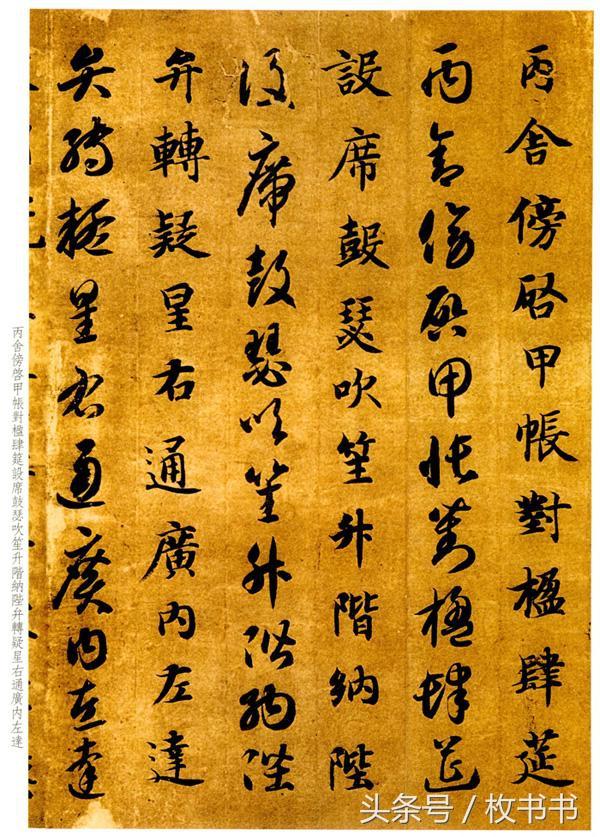 丙舍傍啓甲帳對楹肆筵
丙舍傍啓甲帳對楹肆筵
設席鼓瑟吹笙升階納陛
設席鼓瑟吹笙升階納陛
弁轉疑星右通廣内左達
弁轉疑星右通廣内左達
丙舍傍啓甲帳對楹肆筵設席鼓瑟吹笙升階納陛弁轉疑星右通廣内左達
头条号 / 枚书书